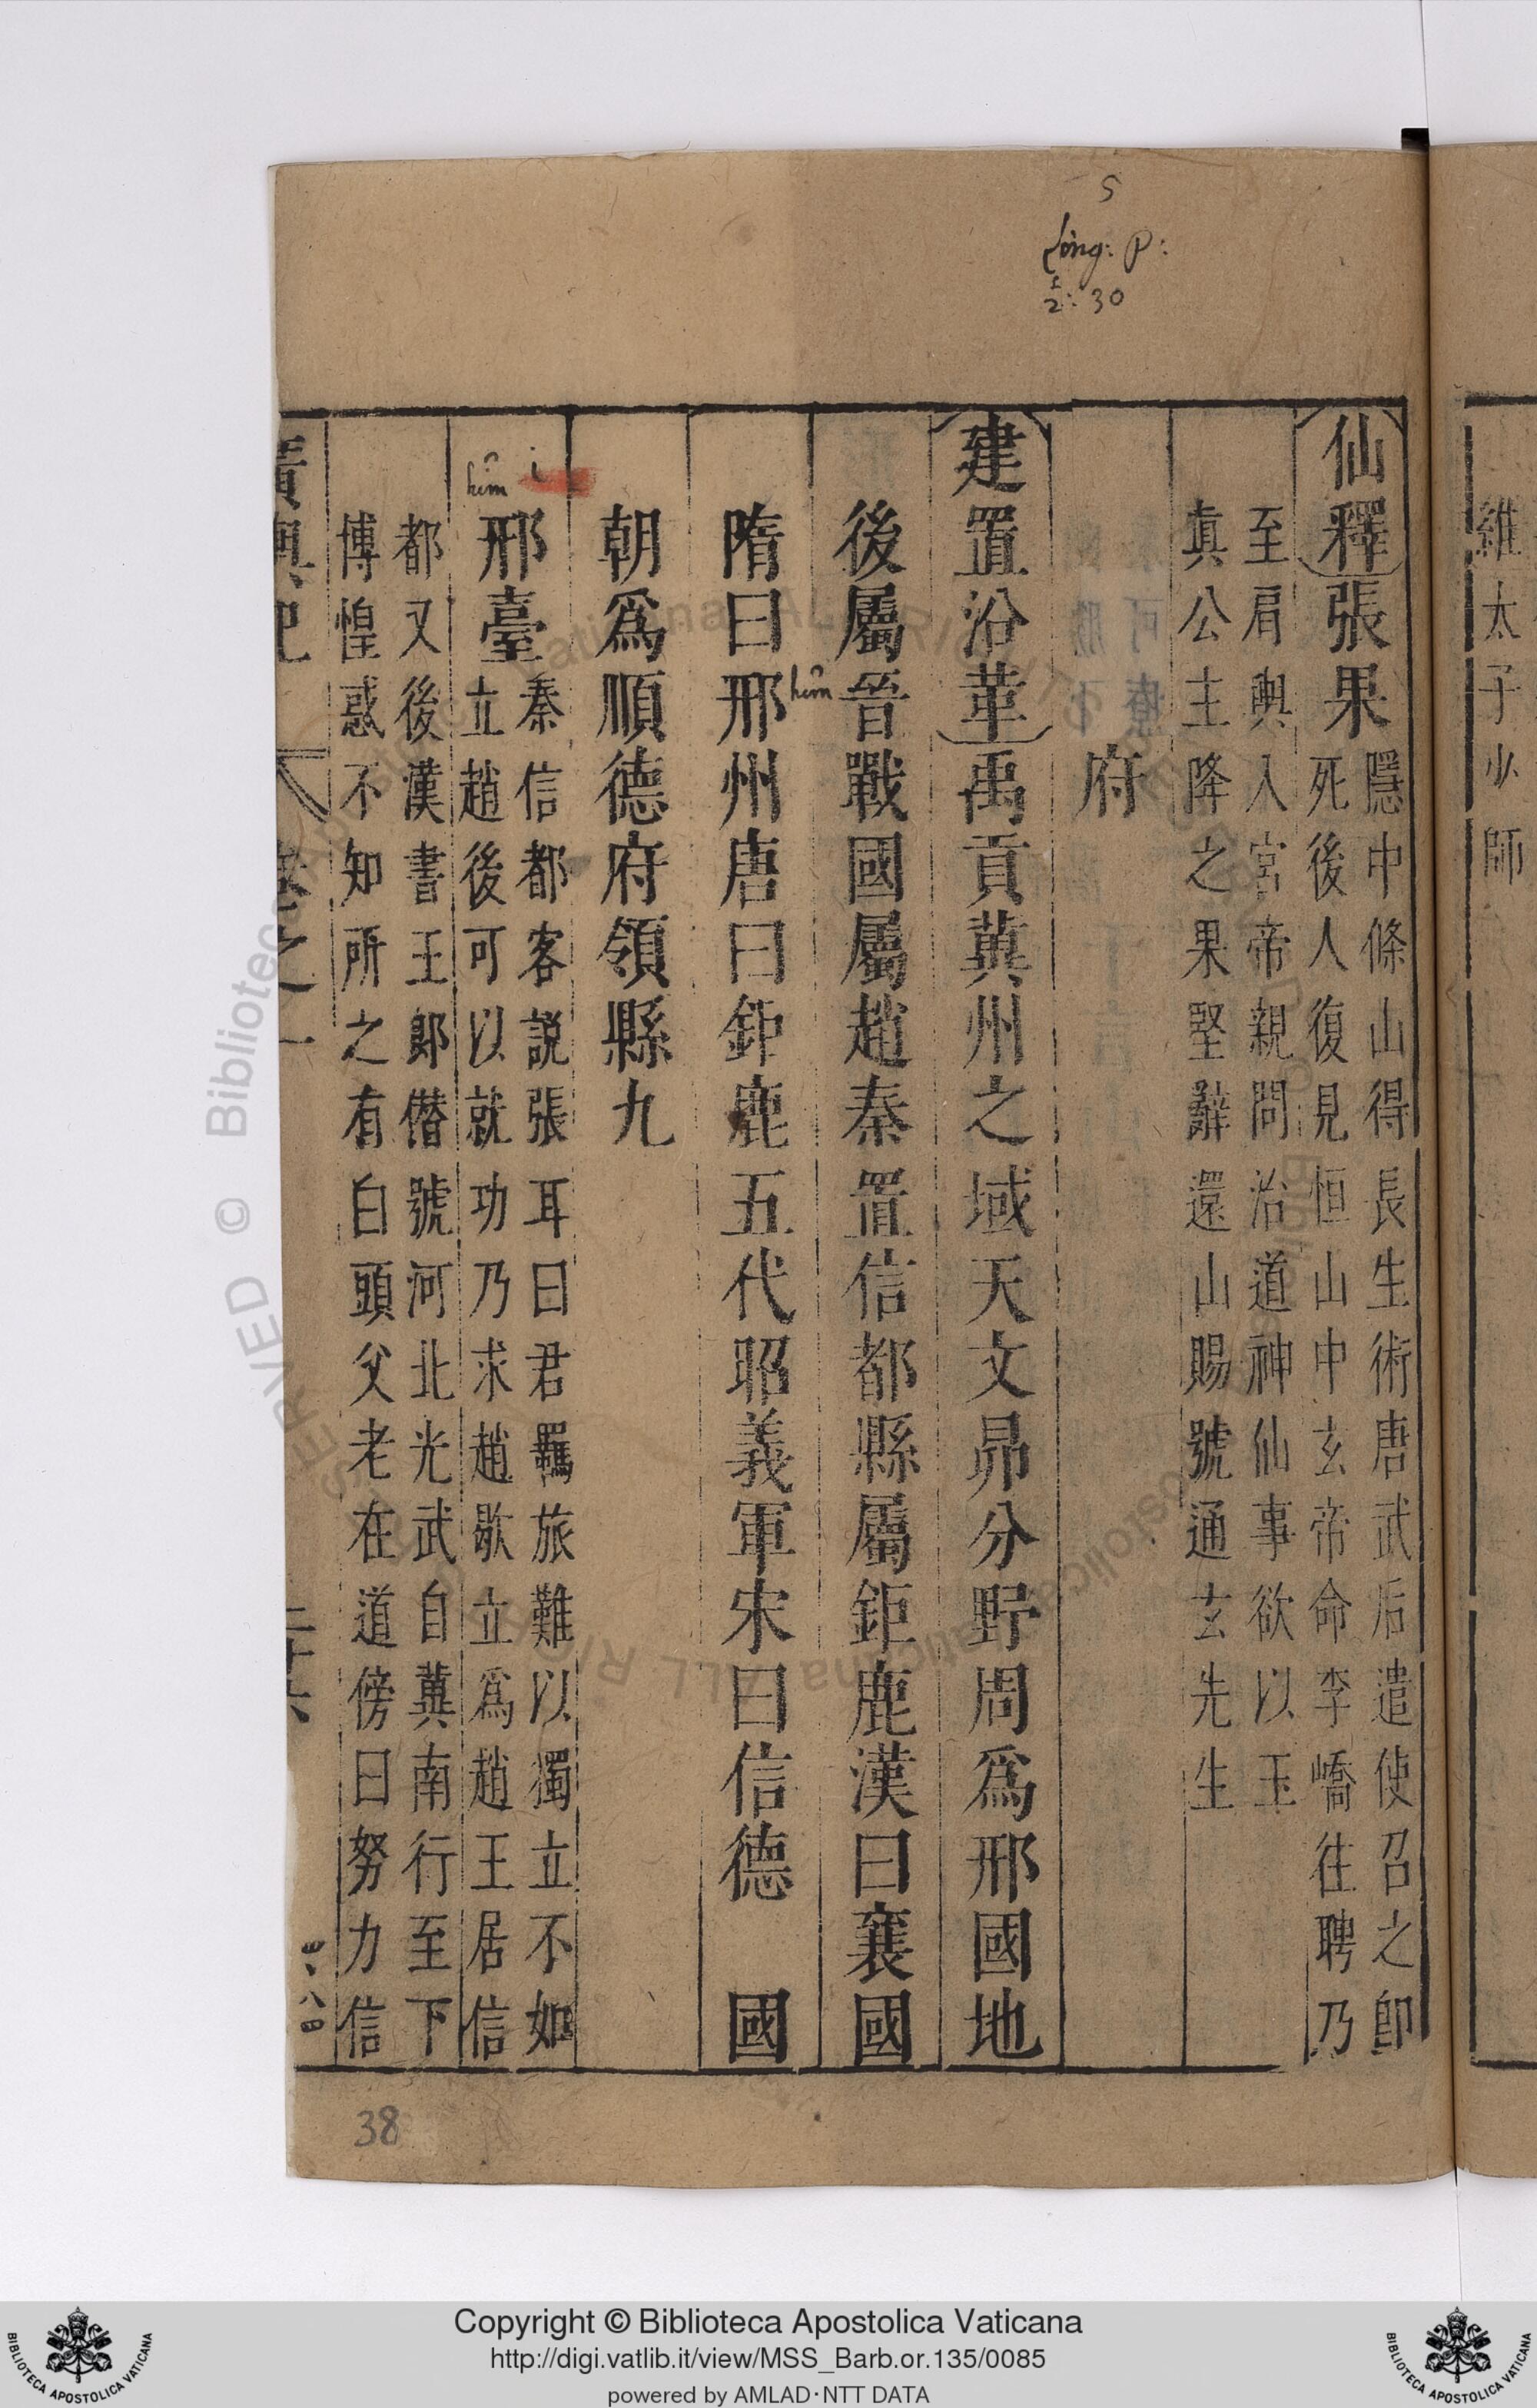 維太子少師
仙釋張果隱中條山得長生術唐武后遣使召之卽
死後人復見恒山中玄帝命李嶠往聘乃
至肩輿入宮帝親問治道神仙事欲以玉
真公主降之果堅辭還山賜號通玄先生
府
建置沿革禹貢冀州之域天文昴分野周爲邢國地
後屬晉戰國屬趙秦置信都縣屬鉅鹿漢曰襄國
隋曰邢州唐曰鉅鹿五代昭義軍宋曰信德 國
朝爲順德府領縣九
邢臺秦信都客説張耳曰君羈旅難以獨立不如
立趙後可以就功乃求趙歇立爲趙王居信
都又後漢書王郎僣號河北光武自冀南行至下
博惶惑不知所之有白頭父老在道傍曰努力信
廣輿記 卷之一 二十六
5
2: 30
hîm
hîm
i
38
Copyright © Biblioteca Apostolica Vaticana
http://digi.vatlib.it/view/MSS_Barb.or.135/0085
powered by AMLAD·NTT DATA
BIBLIOTECA APOSTOLICA VATICANA
BIBLIOTECA APOSTOLICA VATICANA